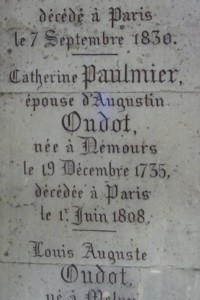 décédé à Paris
le 7 Septembre 1830.
Catherine Paulmier,
épouse d'Augustin
Oudot,
née à Némours
le 19 Décembre 1735,
décédée à Paris
le 1r. Juin 1808.
Louis Auguste
Oudot,
né à Melun